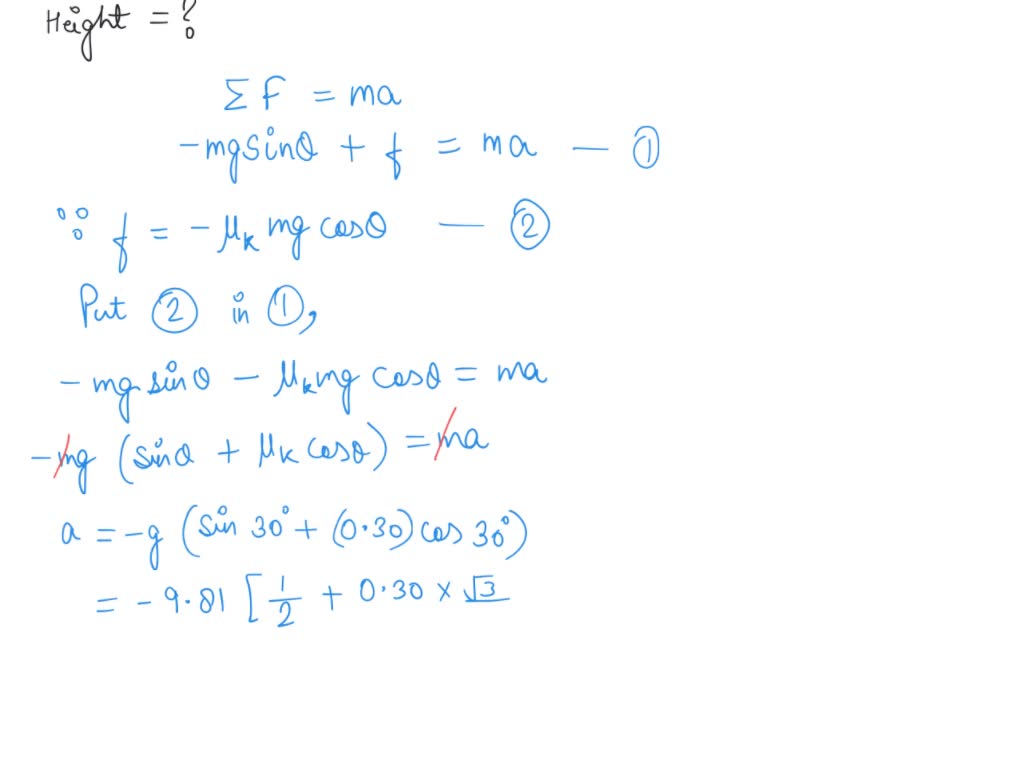 Height = ?
Σ F = ma
-mg sinθ + f = ma — ①
∵ f = -μₖ mg cosθ — ②
Put ② in ①,
-mg sinθ - μₖ mg cosθ = ma
-mg (sinθ + μₖ cosθ) = ma
a = -g (sin 30° + (0.30) cos 30°)
= -9.81 [1/2 + 0.30 × √3